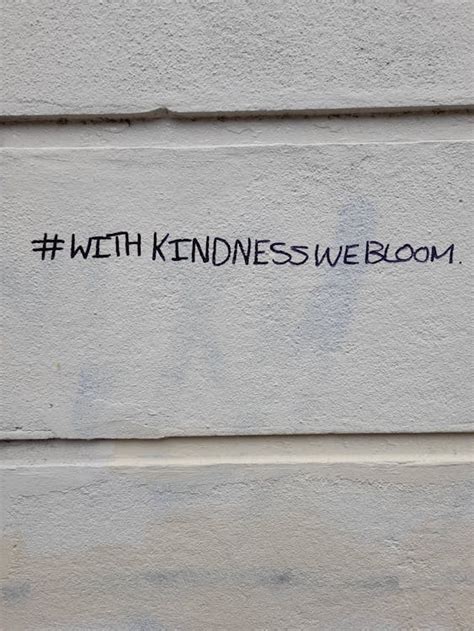 #WITH KINDNESS WE BLOOM.